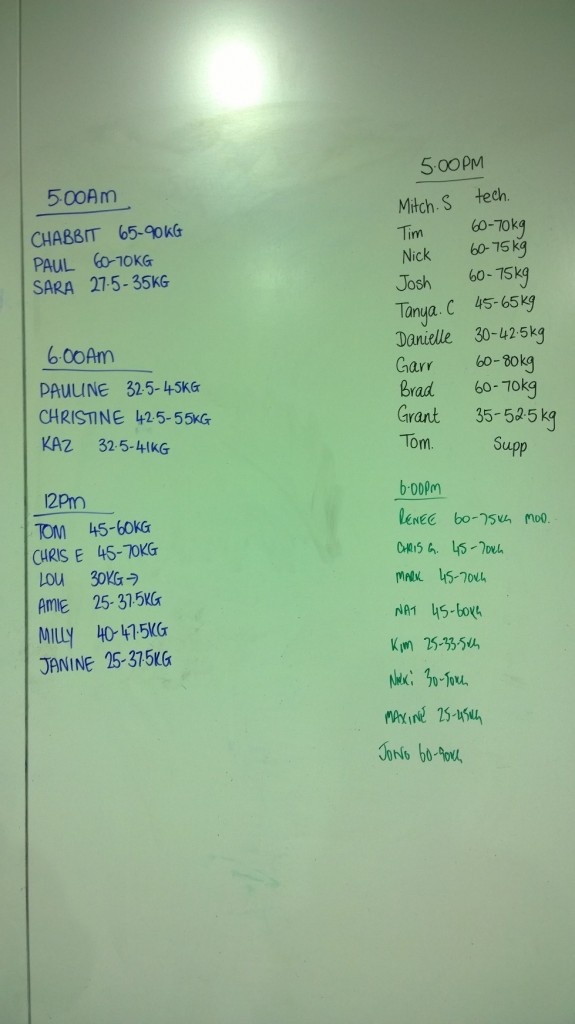 5:00Am
CHABBIT 65-90KG
PAUL 60-70KG
SARA 27.5-35KG
6:00Am
PAULINE 32.5-45KG
CHRISTINE 42.5-55KG
KAZ 32.5-41KG
12Pm
TOM 45-60KG
CHRIS E 45-70KG
LOU 30KG→
AMIE 25-37.5KG
MILLY 40-47.5KG
JANINE 25-37.5KG
5:00PM
Mitch. S tech.
Tim 60-70kg
Nick 60-75kg
Josh 60-75kg
Tanya. C 45-65kg
Danielle 30-42.5kg
Garr 60-80kg
Brad 60-70kg
Grant 35-52.5kg
Tom. Supp
6:00PM
RENEE 60-75KG MOD.
CHRIS G. 45-70KG
MARK 45-70KG
NAT 45-60KG
Kim 25-33.5KG
Nikki 30-50KG
MAXINE 25-45KG
JONO 60-90KG